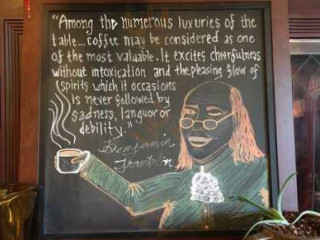 "Among the numerous luxuries of the
table...coffee may be considered as one
of the most valuable. It excites cheerfulness
without intoxication and the pleasing flow of
spirits which it occasions
is never followed by
sadness, languor or
debility."
Benjamin
Franklin